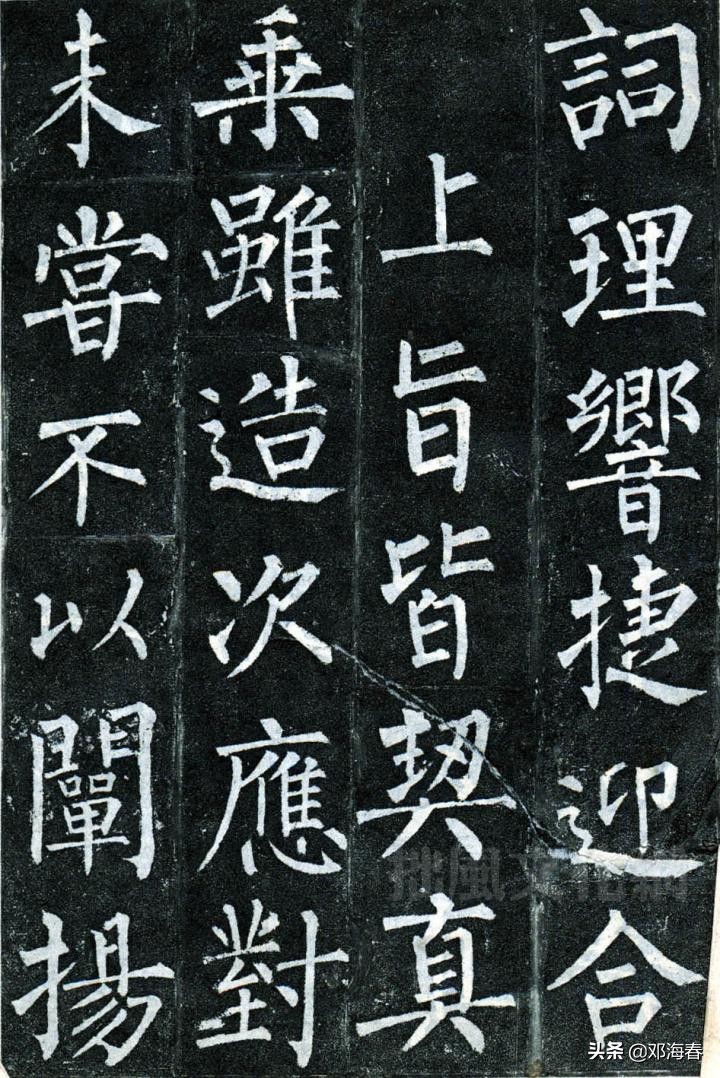 詞理響捷迎合
上旨皆契真
乘雖造次應對
未甞不以闡揚
头条 @邓海春